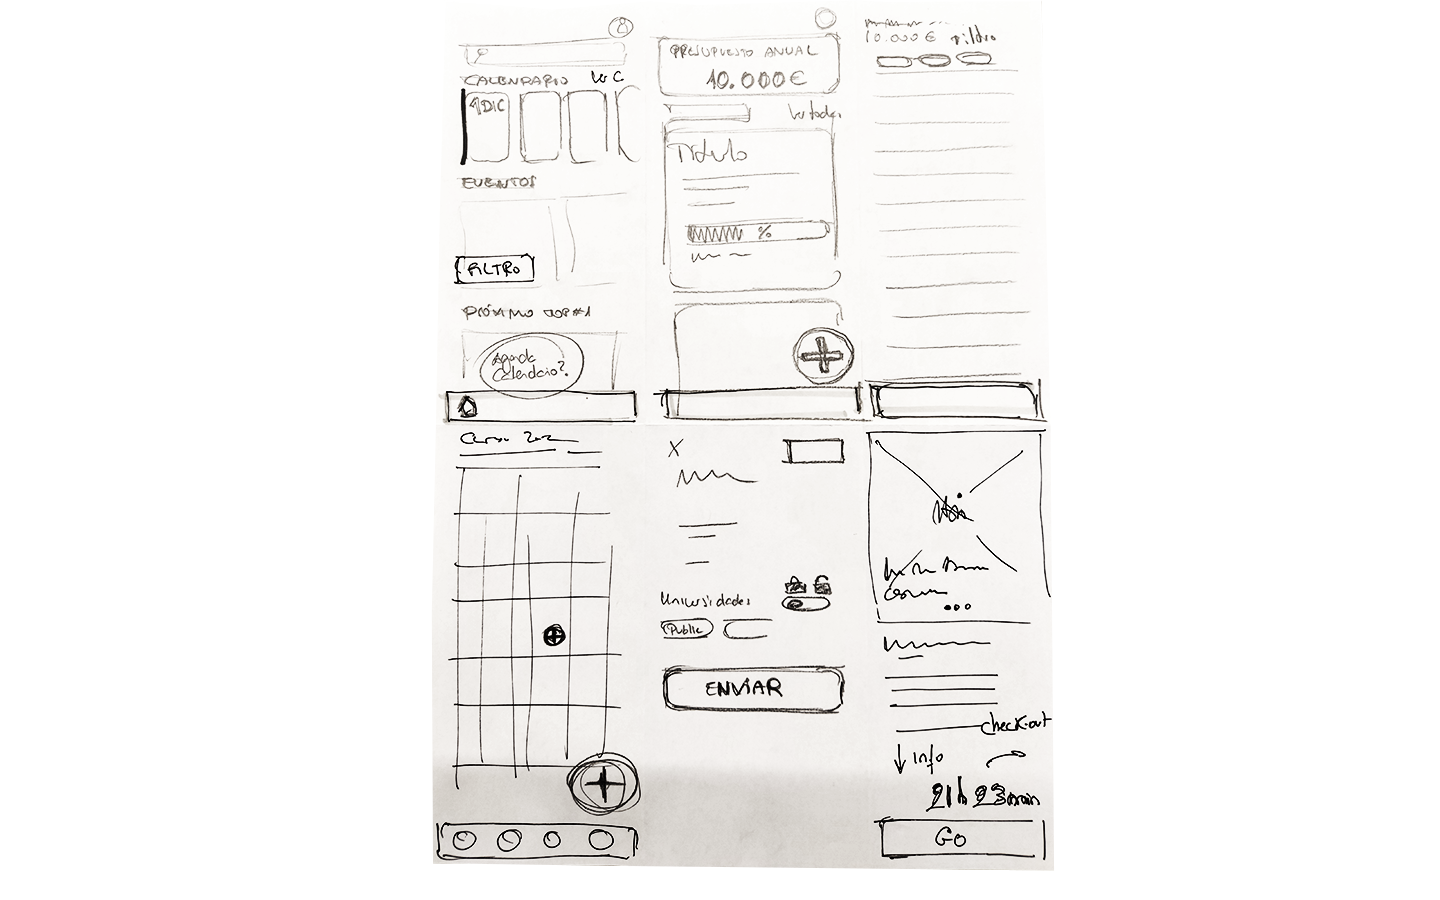 CALENDARIO Ver C
1 DIC
EVENTOS
FILTRO
PRÓXIMO TOP #1
Agenda
Calendario?
PRESUPUESTO ANUAL
10.000€
Ver todas
Título
%
10.000€ Filtro
Curso
X
Universidades
Public
ENVIAR
check-out
Info
21h 23min
GO